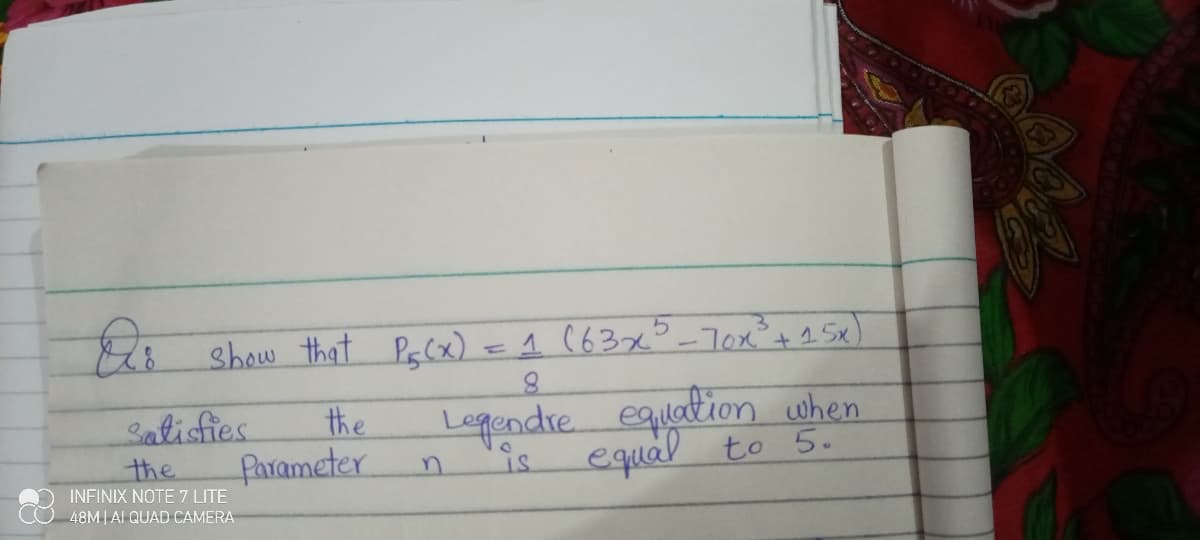 Q: Show that P₅(x) = 1/8 (63x⁵ - 70x³ + 15x)
Satisfies the Legendre equation when
the Parameter n is equal to 5.
INFINIX NOTE 7 LITE
48M | AI QUAD CAMERA